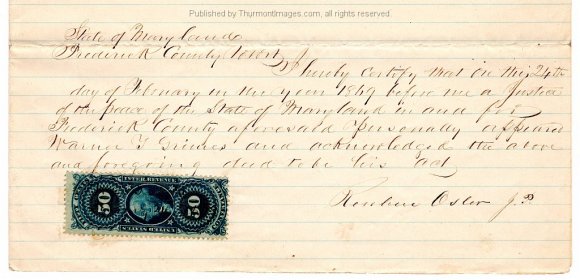 Published by ThurmontImages.com, all rights reserved.
State of Maryland
Frederick County to wit
I hereby certify that on this 24th
day of February in the year 1869 before me a Justice
of the peace of the State of Maryland in and for
Frederick County aforesaid personally appeared
Warner T Grimes and acknowledged the above
and foregoing deed to be his act
Reuben Osler J.P.
INTER. REVENUE
50
50
UNITED STATES